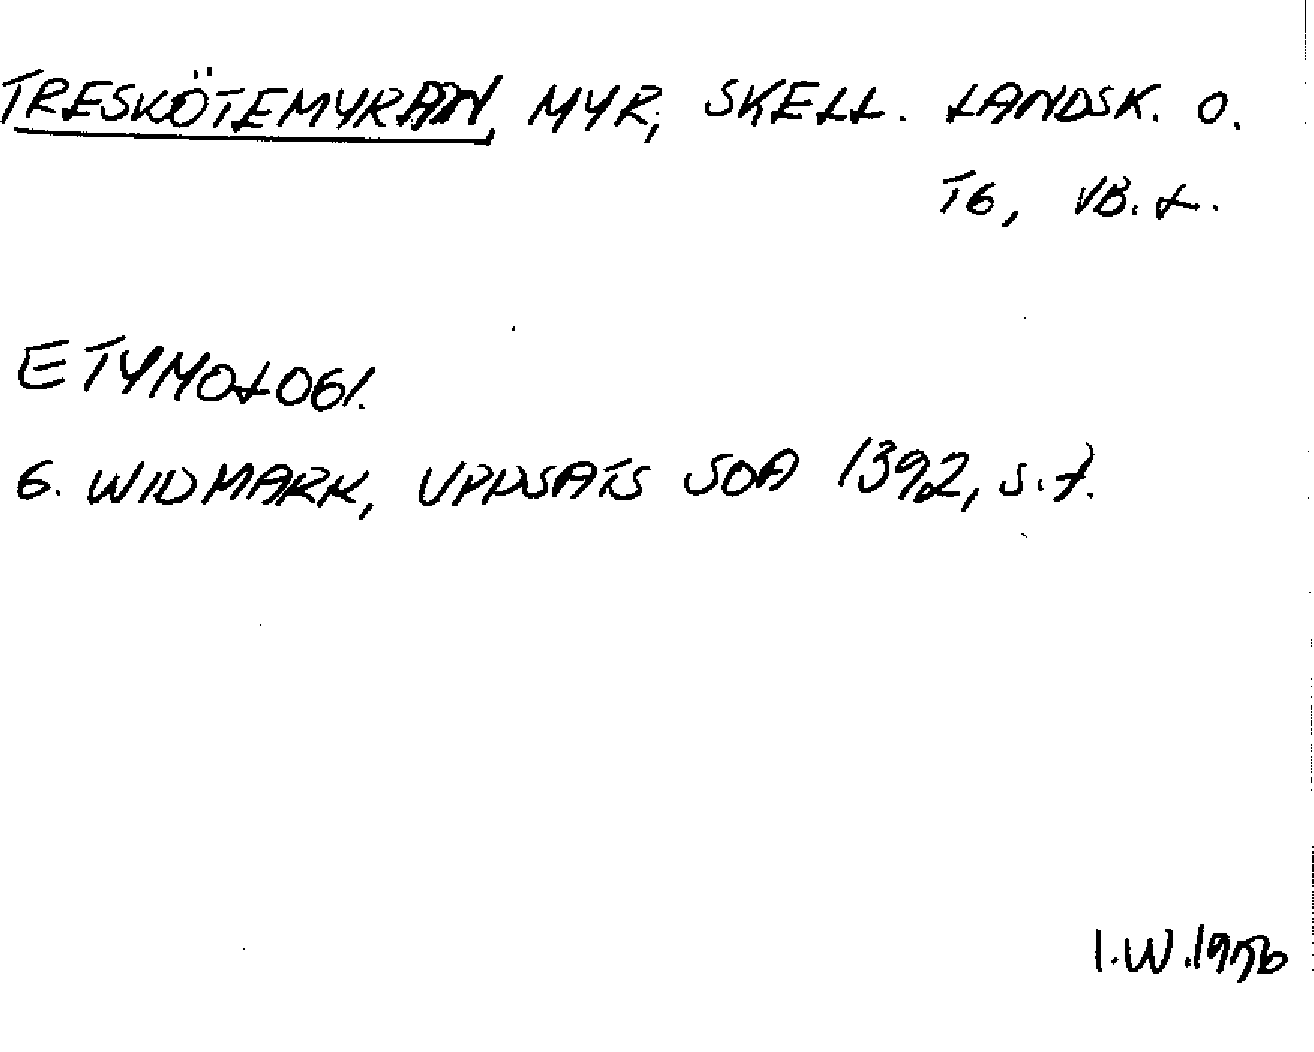 TRESKÖTEMYRAN, MYR, SKELL. LANDSK. O.
TG, VB. L.
ETYMOLOGI.
G. WIDMARK, UPPSATS SOA 1392, S. 7.
I.W. 1956